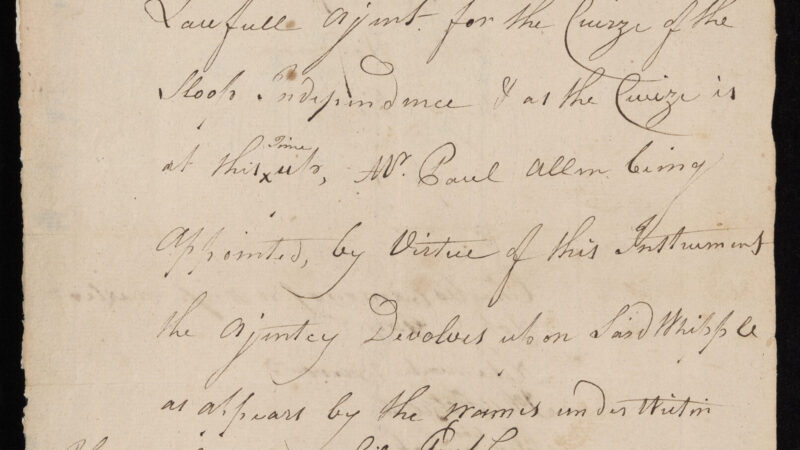 Lawfull Ajent. for the Cuirze of the
Sloop Independence & as the Cuize is
at this x Time up, Mr. Paul Allen being
Appointed, by Virtue of this Instrument
the Ajentcy Devolves upon Said Whipple
as appears by the names under Writin